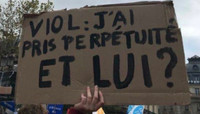 VIOL: J'AI
PRIS PERPÉTUITÉ
ET LUI?